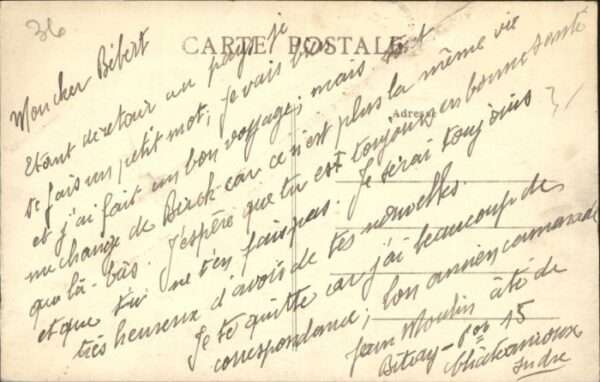 36
CARTE POSTALE
Adresse
Mon cher Bébert
Etant de retour au pays je
te fais un petit mot, je vais bien
et j'ai fait un bon voyage; mais
me change de car ce n'est plus la même vie
que là-bas. J'espère que tu est toujours en bonne santé
et que tu ne t'en fais pas. Je serai toujours
très heureux d'avoir de tes nouvelles.
Je te quitte car j'ai beaucoup de
correspondance; ton ancien camarade
Jean Moulin
15
Châteauroux
Indre